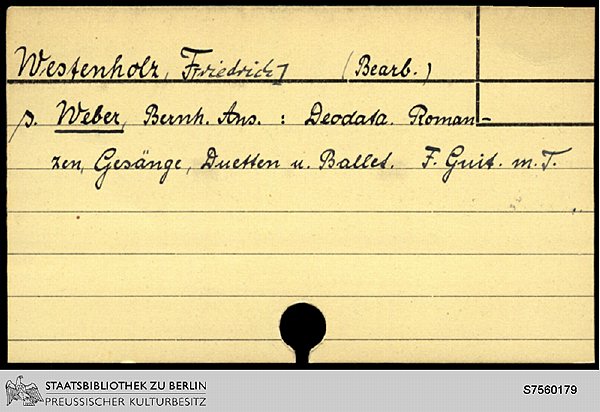 Westenholz, Friedrich] (Bearb.)
s. Weber, Bernh. Ans. : Deodata. Roman-
zen, Gesänge, Duetten u. Ballet. F. Guit. m. T.
STAATSBIBLIOTHEK ZU BERLIN
PREUSSISCHER KULTURBESITZ
S7560179